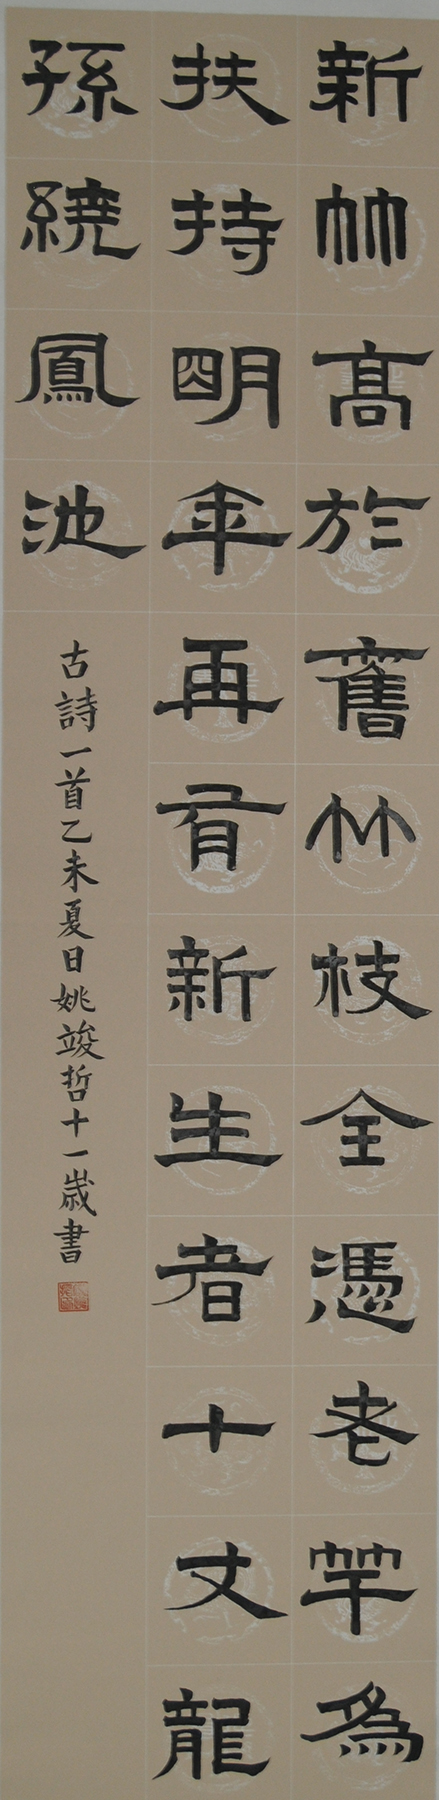 新竹高於舊竹枝全憑老竿為
扶持明年再有新生者十丈龍
孫繞鳳池
古詩一首乙未夏日姚竣哲十一歲書